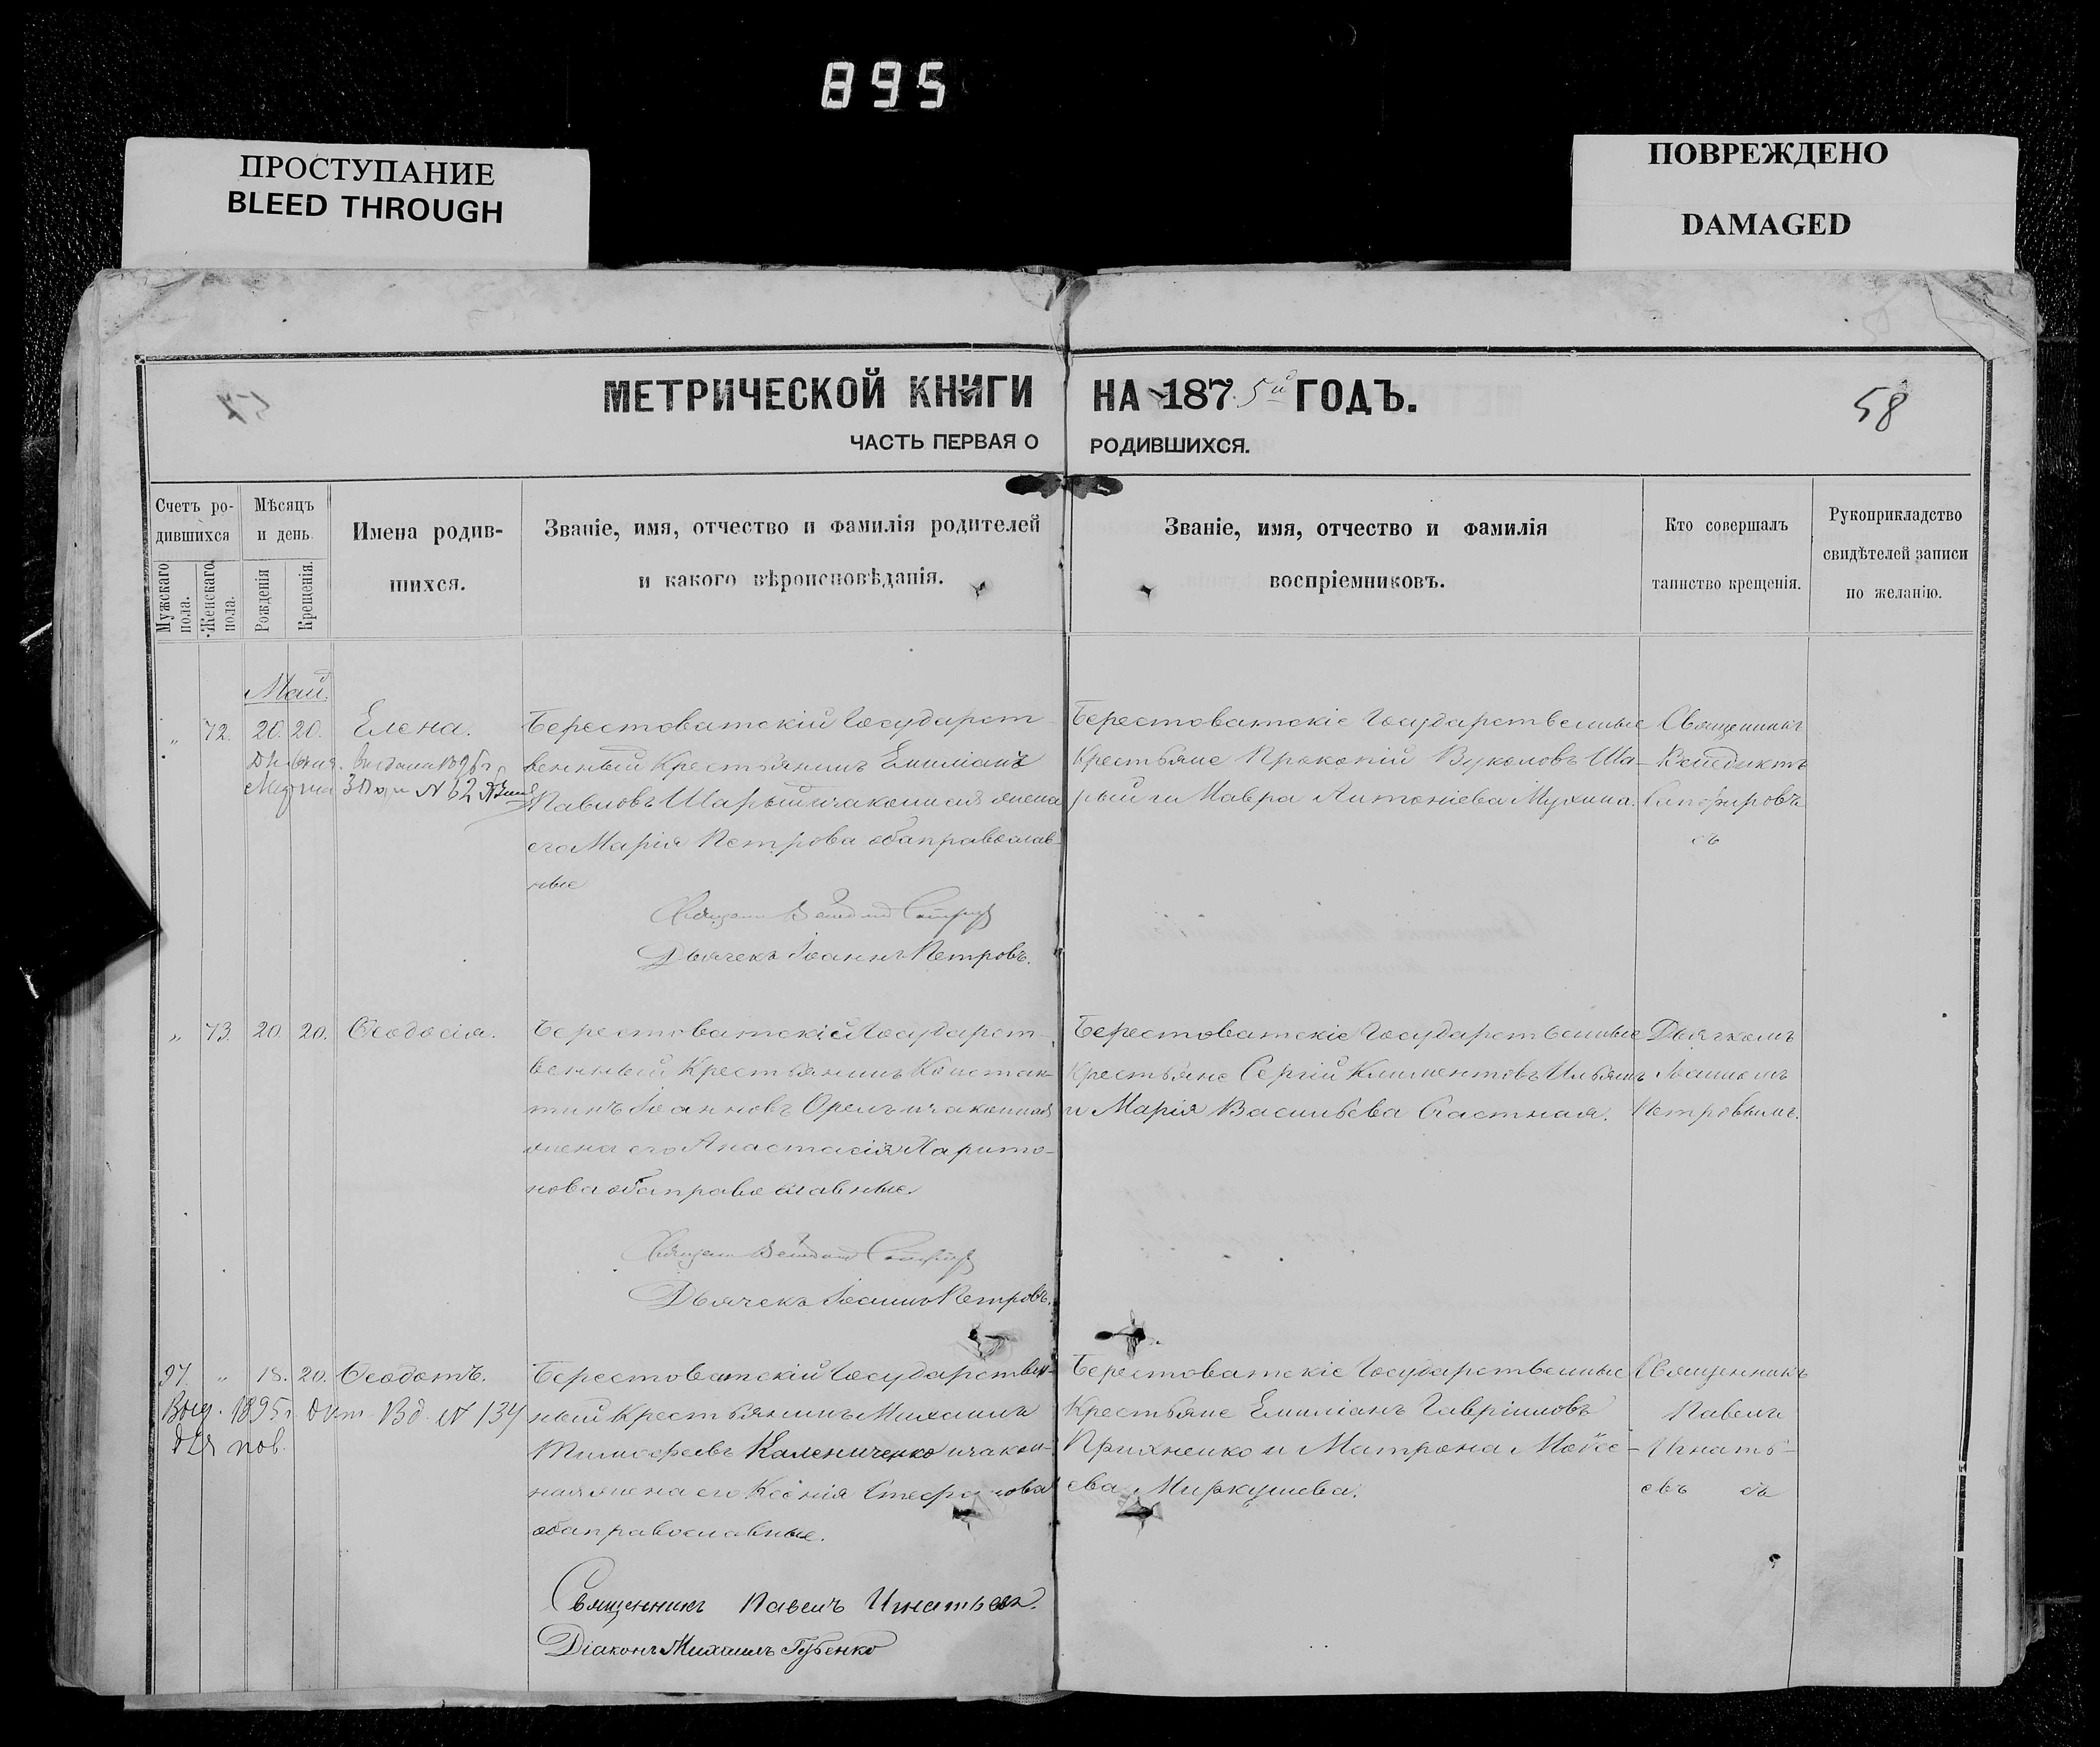 895
ПРОСТУПАНИЕ
BLEED THROUGH
ПОВРЕЖДЕНО
DAMAGED
МЕТРИЧЕСКОЙ КНИГИ НА 1875й ГОДЪ.
58
ЧАСТЬ ПЕРВАЯ О РОДИВШИХСЯ.
Счетъ ро-
дившихся
Мужскаго пола.
Женскаго пола.
Мѣсяцъ
и день.
Рожденія
Крещенія.
Имена родив-
шихся.
Званіе, имя, отчество и фамилія родителей
и какого вѣроисповѣданія.
Званіе, имя, отчество и фамилія
воспріемниковъ.
Кто совершалъ
таинство крещенія.
Рукоприкладство
свидѣтелей записи
по желанію.
Май
" 72. 20. 20. Елена.
1895 г.
№ 62
Берестоватскій Государст-
венный Крестьянинъ Емиліанъ
Павловъ Шарый и законная жена
его Марія Петрова оба православ-
ные
Дьячекъ Іоаннъ Петровъ.
Берестоватскіе Государственные
Крестьяне Прокопій Вуколовъ Ша-
рый и Мавра Антоніева Мухина.
Священникъ
Венедиктъ
Сапфировъ
съ
" 73. 20. 20. Ѳеодосія.
Берестоватскій Государст-
венный Крестьянинъ Констан-
тинъ Іоанновъ Орелъ и законная
жена его Анастасія Харито-
нова оба православные.
Дьячекъ Іоаннъ Петровъ.
Берестоватскіе Государственные
Крестьяне Сергій Климентовъ Ильяшъ
и Марія Васильева Счастная.
Дьячкомъ
Іоанномъ
Петровымъ.
37. " 18. 20. Ѳеодотъ.
1895 г. Окт. Вд. № 134
для пов.
Берестоватскій Государствен-
ный Крестьянинъ Михаилъ
Тимофеевъ Калениченко и закон-
ная жена его Ксенія Стефанова
оба православные.
Священникъ Павелъ Игнатьевъ.
Діаконъ Михаилъ Губенко
Берестоватскіе Государственные
Крестьяне Емиліанъ Гавріиловъ
Прихненко и Матрона Моѵсе-
ева Миркушева.
Священникъ
Павелъ
Игнать-
евъ съ